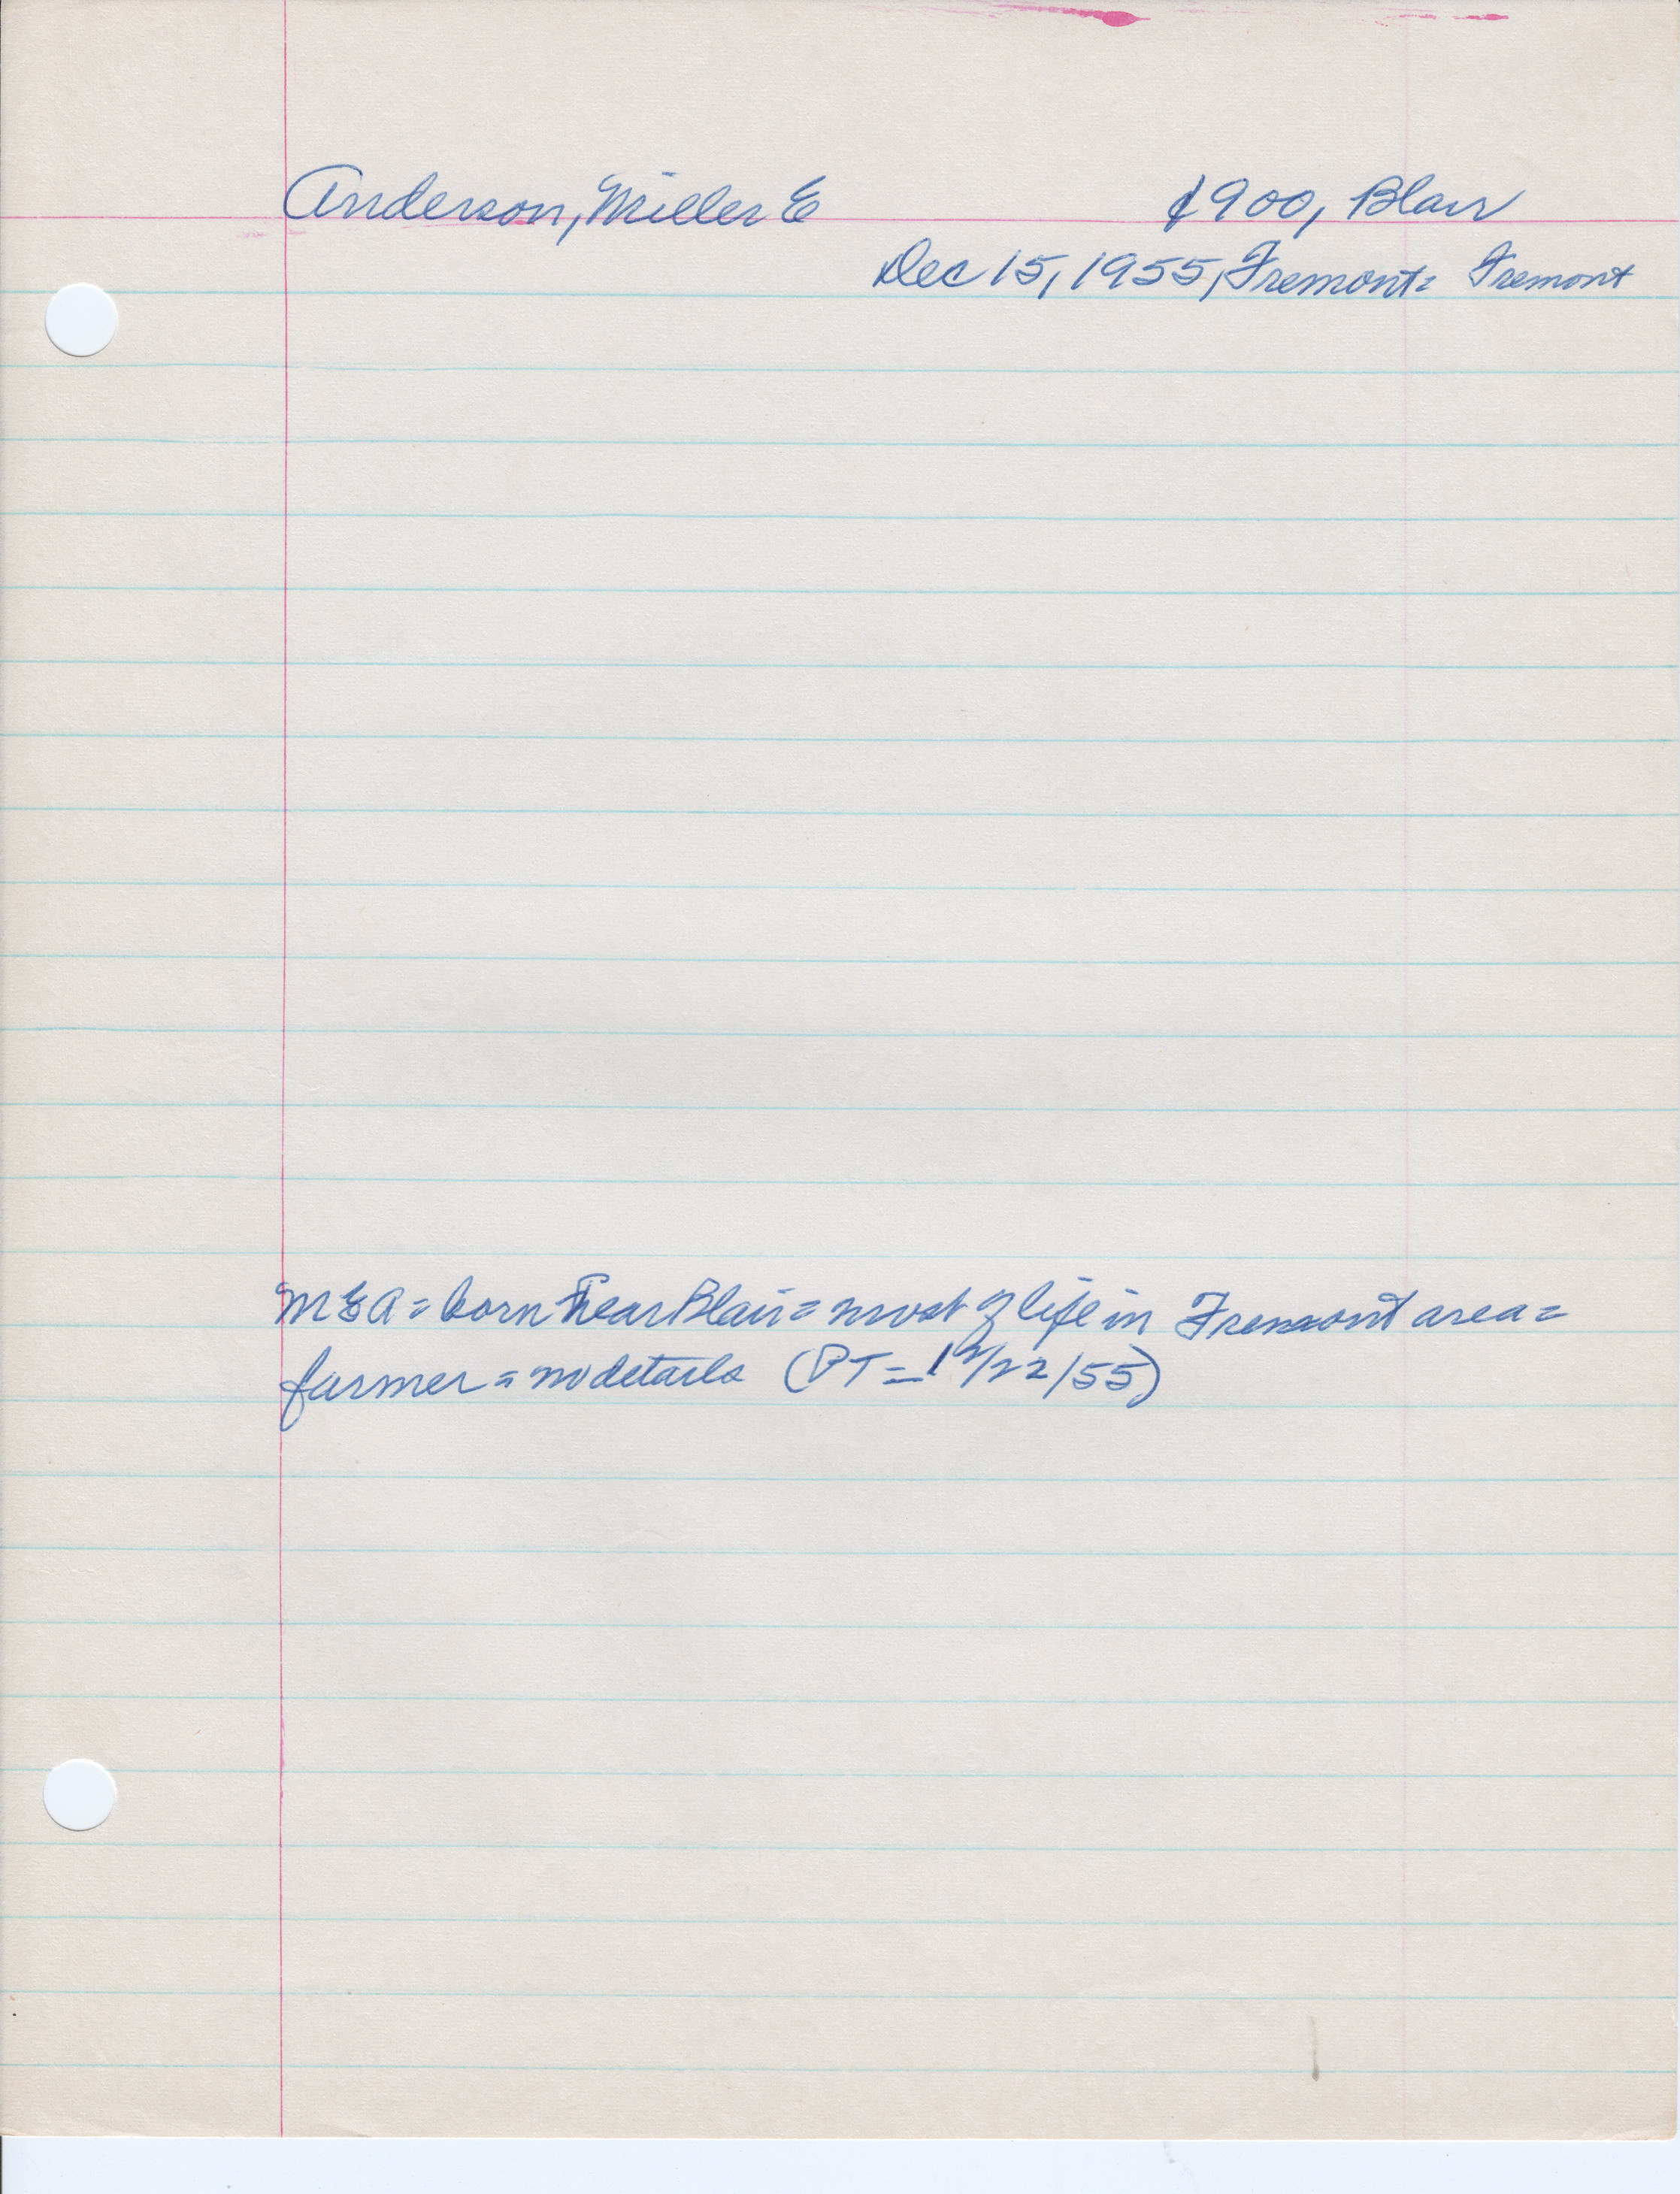 Anderson, Miller E ¢900, Blair
Dec 15, 1955, Fremont = Fremont
MEA = born near Blair = most of life in Fremont area =
farmer = no details (PT = 12/22/55)